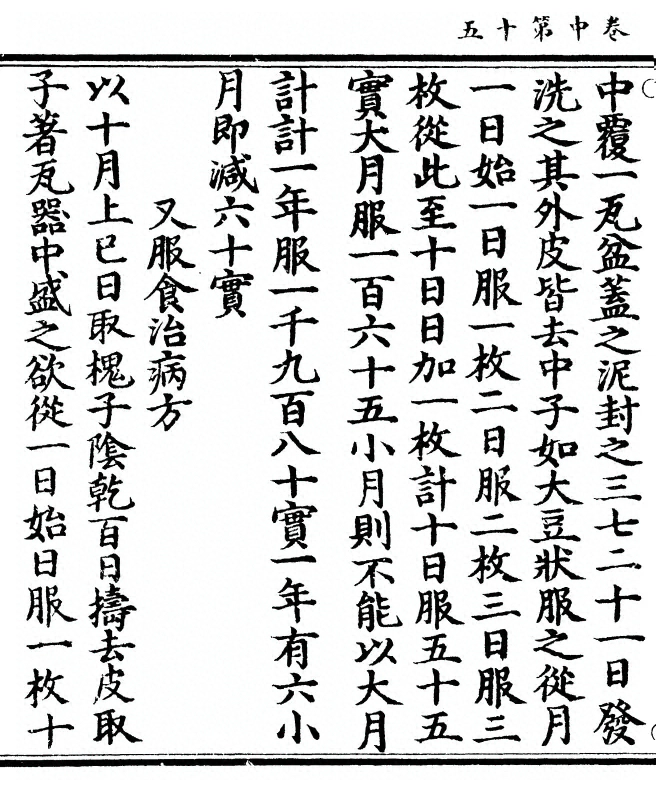 卷中第十五
中覆一瓦盆蓋之泥封之三七二十一日發
洗之其外皮皆去中子如大豆狀服之從月
一日始一日服一枚二日服二枚三日服三
枚從此至十日日加一枚計十日服五十五
實大月服一百六十五小月則不能以大月
計計一年服一千九百八十實一年有六小
月即減六十實
又服食治病方
以十月上巳日取槐子陰乾百日擣去皮取
子著瓦器中盛之欲從一日始日服一枚十